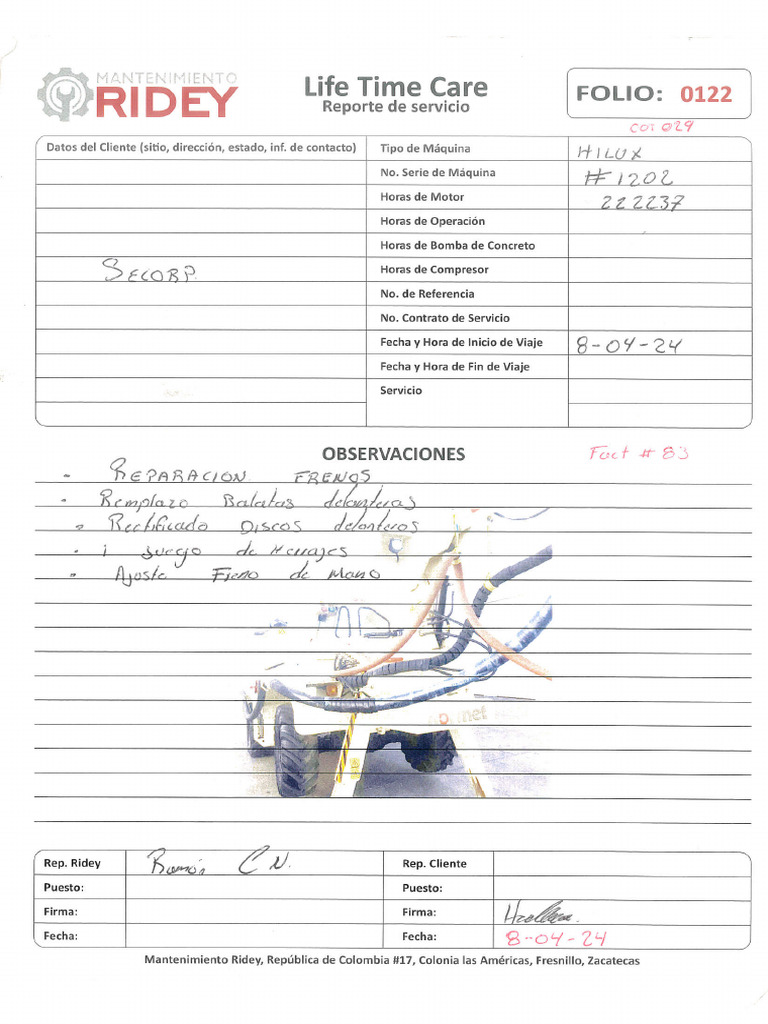 MANTENIMIENTO
RIDEY
Life Time Care
Reporte de servicio
FOLIO: 0122
COT 029
Datos del Cliente (sitio, dirección, estado, inf. de contacto)
Tipo de Máquina HILUX
No. Serie de Máquina #1202
Horas de Motor 222237
Horas de Operación
Horas de Bomba de Concreto
SECORP.
Horas de Compresor
No. de Referencia
No. Contrato de Servicio
Fecha y Hora de Inicio de Viaje 8-04-24
Fecha y Hora de Fin de Viaje
Servicio
OBSERVACIONES
Fact # 83
- REPARACION FRENOS
- Remplazo Balatas delanteras
- Rectificado Discos delanteros
- 1 Juego de Herrajes
- Ajuste Freno de Mano
Rep. Ridey Ramón C N.
Rep. Cliente
Puesto:
Puesto:
Firma:
Firma:
Fecha:
Fecha: 8-04-24
Mantenimiento Ridey, República de Colombia #17, Colonia las Américas, Fresnillo, Zacatecas